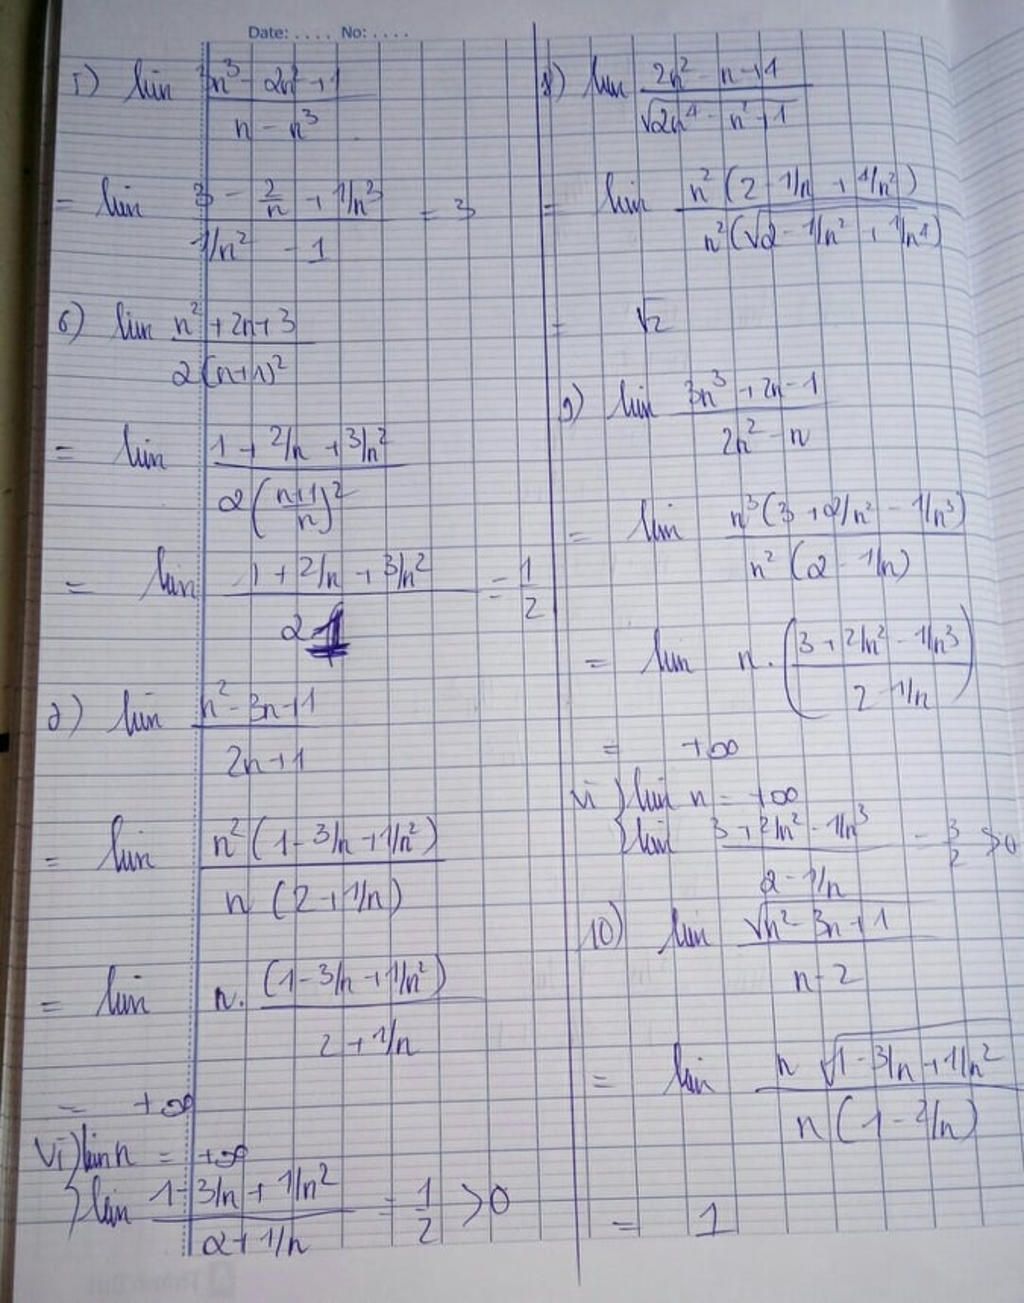 Date: .... No: ....
5) lim (3n³ - 2n² + 1)/(n - n³)
= lim (3 - 2/n + 1/n³)/(1/n² - 1) = 3
6) lim (n² + 2n + 3)/(2(n+1)²)
= lim (1 + 2/n + 3/n²)/(2((n+1)/n)²)
= lim (1 + 2/n + 3/n²)/(2 1) = 1/2
) lim (n² - 3n + 1)/(2n + 1)
= lim (n²(1 - 3/n + 1/n²))/(n(2 + 1/n))
= lim n. (1 - 3/n + 1/n²)/(2 + 1/n)
= +∞
Vì } lim n = +∞
lim (1 - 3/n + 1/n²)/(2 + 1/n) = 1/2 > 0
8) lim (2n² - n + 1)/√(2n⁴ - n² + 1)
= lim (n²(2 - 1/n + 1/n²))/(n²(√(2 - 1/n² + 1/n⁴)))
= √2
9) lim (3n³ + 2n - 1)/(2n² - n)
= lim (n³(3 + 2/n² - 1/n³))/(n²(2 - 1/n))
= lim n.((3 + 2/n² - 1/n³)/(2 - 1/n))
= +∞
Vì { lim n = +∞
lim (3 + 2/n² - 1/n³)/(2 - 1/n) = 3/2 > 0
10) lim √(n² - 3n + 1)/(n - 2)
= lim (n √(1 - 3/n + 1/n²))/(n(1 - 2/n))
= 1